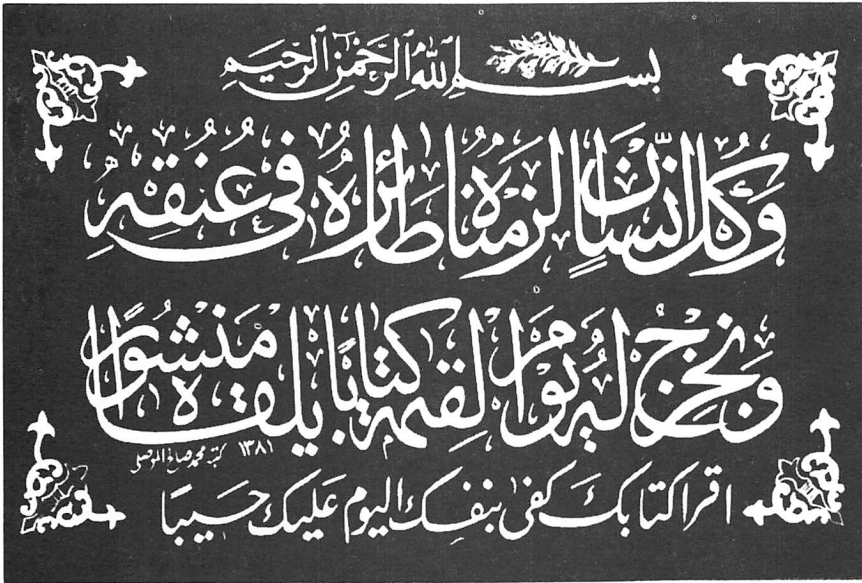 بسم الله الرحمن الرحيم
وكل انسان الزمناه طائره في عنقه
ونخرج له يوم القيمة كتابا يلقاه منشورا
كتبه محمد صالح الموصلي ١٣٨١
اقرا كتابك كفى بنفسك اليوم عليك حسيبا